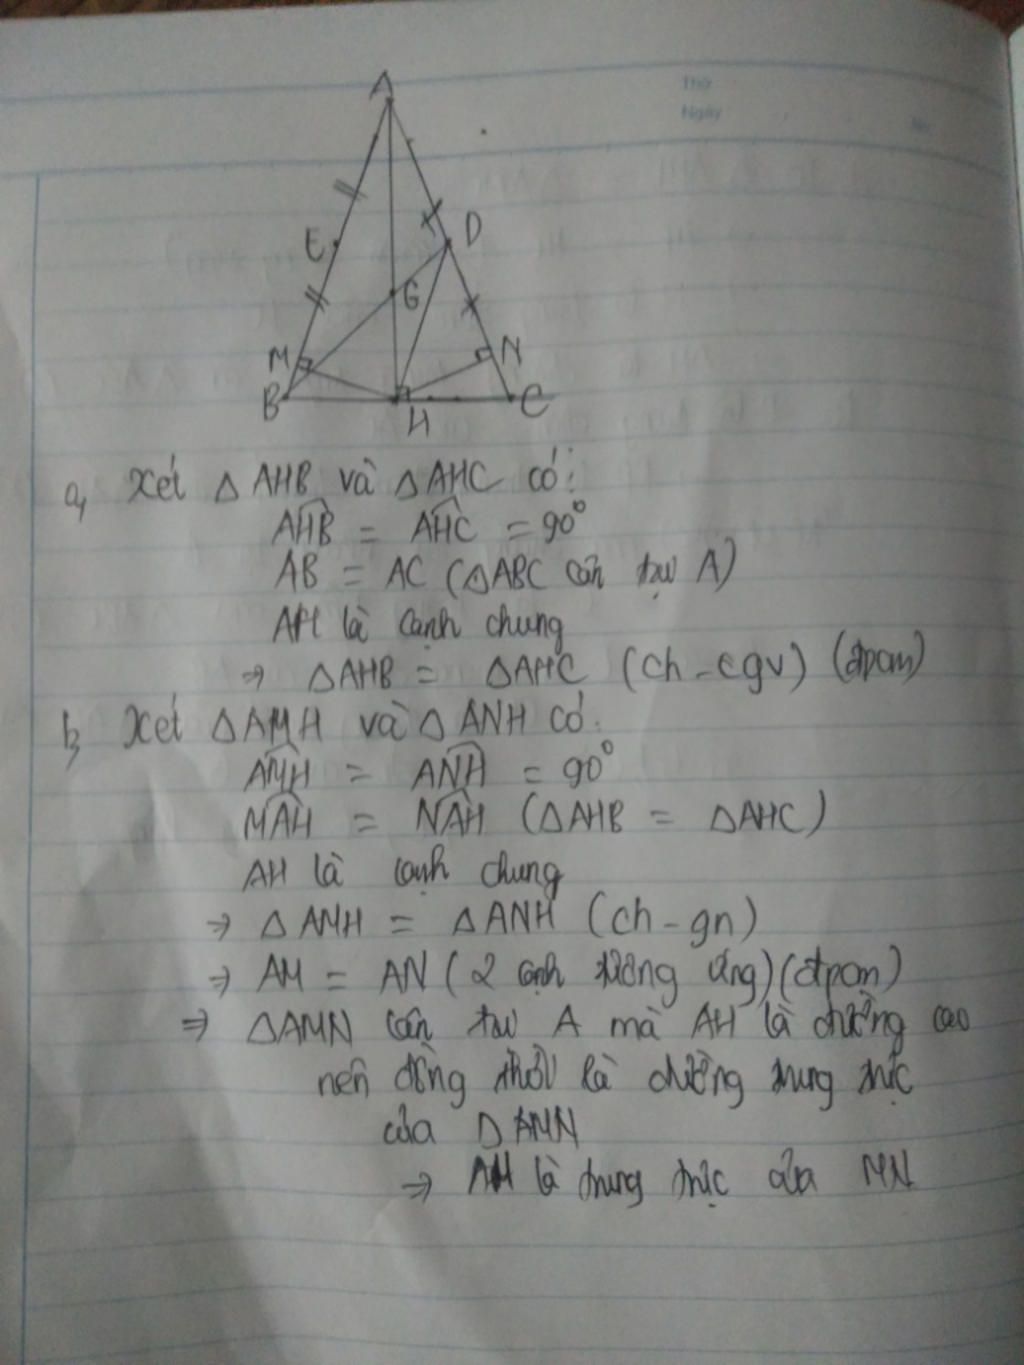 Thứ
Ngày
No.
A
E
D
G
M
N
B
H
C
a, Xét △AHB và △AHC có:
AHB = AHC = 90°
AB = AC (△ABC cân tại A)
AH là cạnh chung
⇒ △AHB = △AHC (ch-cgv) (đpcm)
b, Xét △AMH và △ANH có:
AMH = ANH = 90°
MAH = NAH (△AHB = △AHC)
AH là cạnh chung
⇒ △AMH = △ANH (ch-gn)
⇒ AM = AN (2 cạnh tương ứng) (đpcm)
⇒ △AMN cân tại A mà AH là đường cao
nên đồng thời là đường trung trực
của △AMN
⇒ AH là trung trực của MN